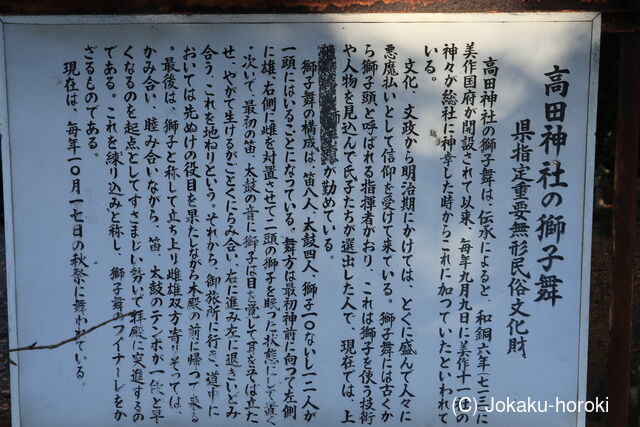 高田神社の獅子舞
県指定重要無形民俗文化財
高田神社の獅子舞は、伝承によると、和銅六年(七一三)に
美作国府が開設されて以来、毎年九月九日に美作十一社の
神々が総社に神幸した時からこれに加つていたといわれて
いる。
文化、文政から明治期にかけては、とくに盛んで人々に
悪魔払いとして信仰を受けて来ている。獅子舞には古くか
ら獅子頭と呼ばれる指揮者がおり、これは獅子を使う技術
や人物を見込んで氏子たちが選出した人で、現在では、上
が勤めている。
獅子舞の構成は、笛八人、太鼓四人、獅子一〇ないし一二人が
一頭にはいることになっている。舞方は最初神前に向って左側
に雄、右側に雌を対置させて二頭の獅子を眠った状態にして置く
。次いで、最初の笛、太鼓の音に獅子は目を覚して耳をそば立た
せ、やがて生けるがごとくにらみ合い、右に進み左に退きいどみ
合う、これを地ねりという。それから、御旅所に行き、道中に
おいては先ぬけの役目を果たしながら本殿の前に帰って来る
。最後は、獅子と称して立ち上り雌雄双方寄りそっては、
かみ合い、睦み合いながら、笛、太鼓のテンポが一段と早
くなるのを起点としてすさまじい勢いで拝殿に突進するの
である。これを練り込みと称し、獅子舞のフィナーレをか
ざるものである。
現在は、毎年一〇月一七日の秋祭に舞われている。
(C) Jokaku-horoki